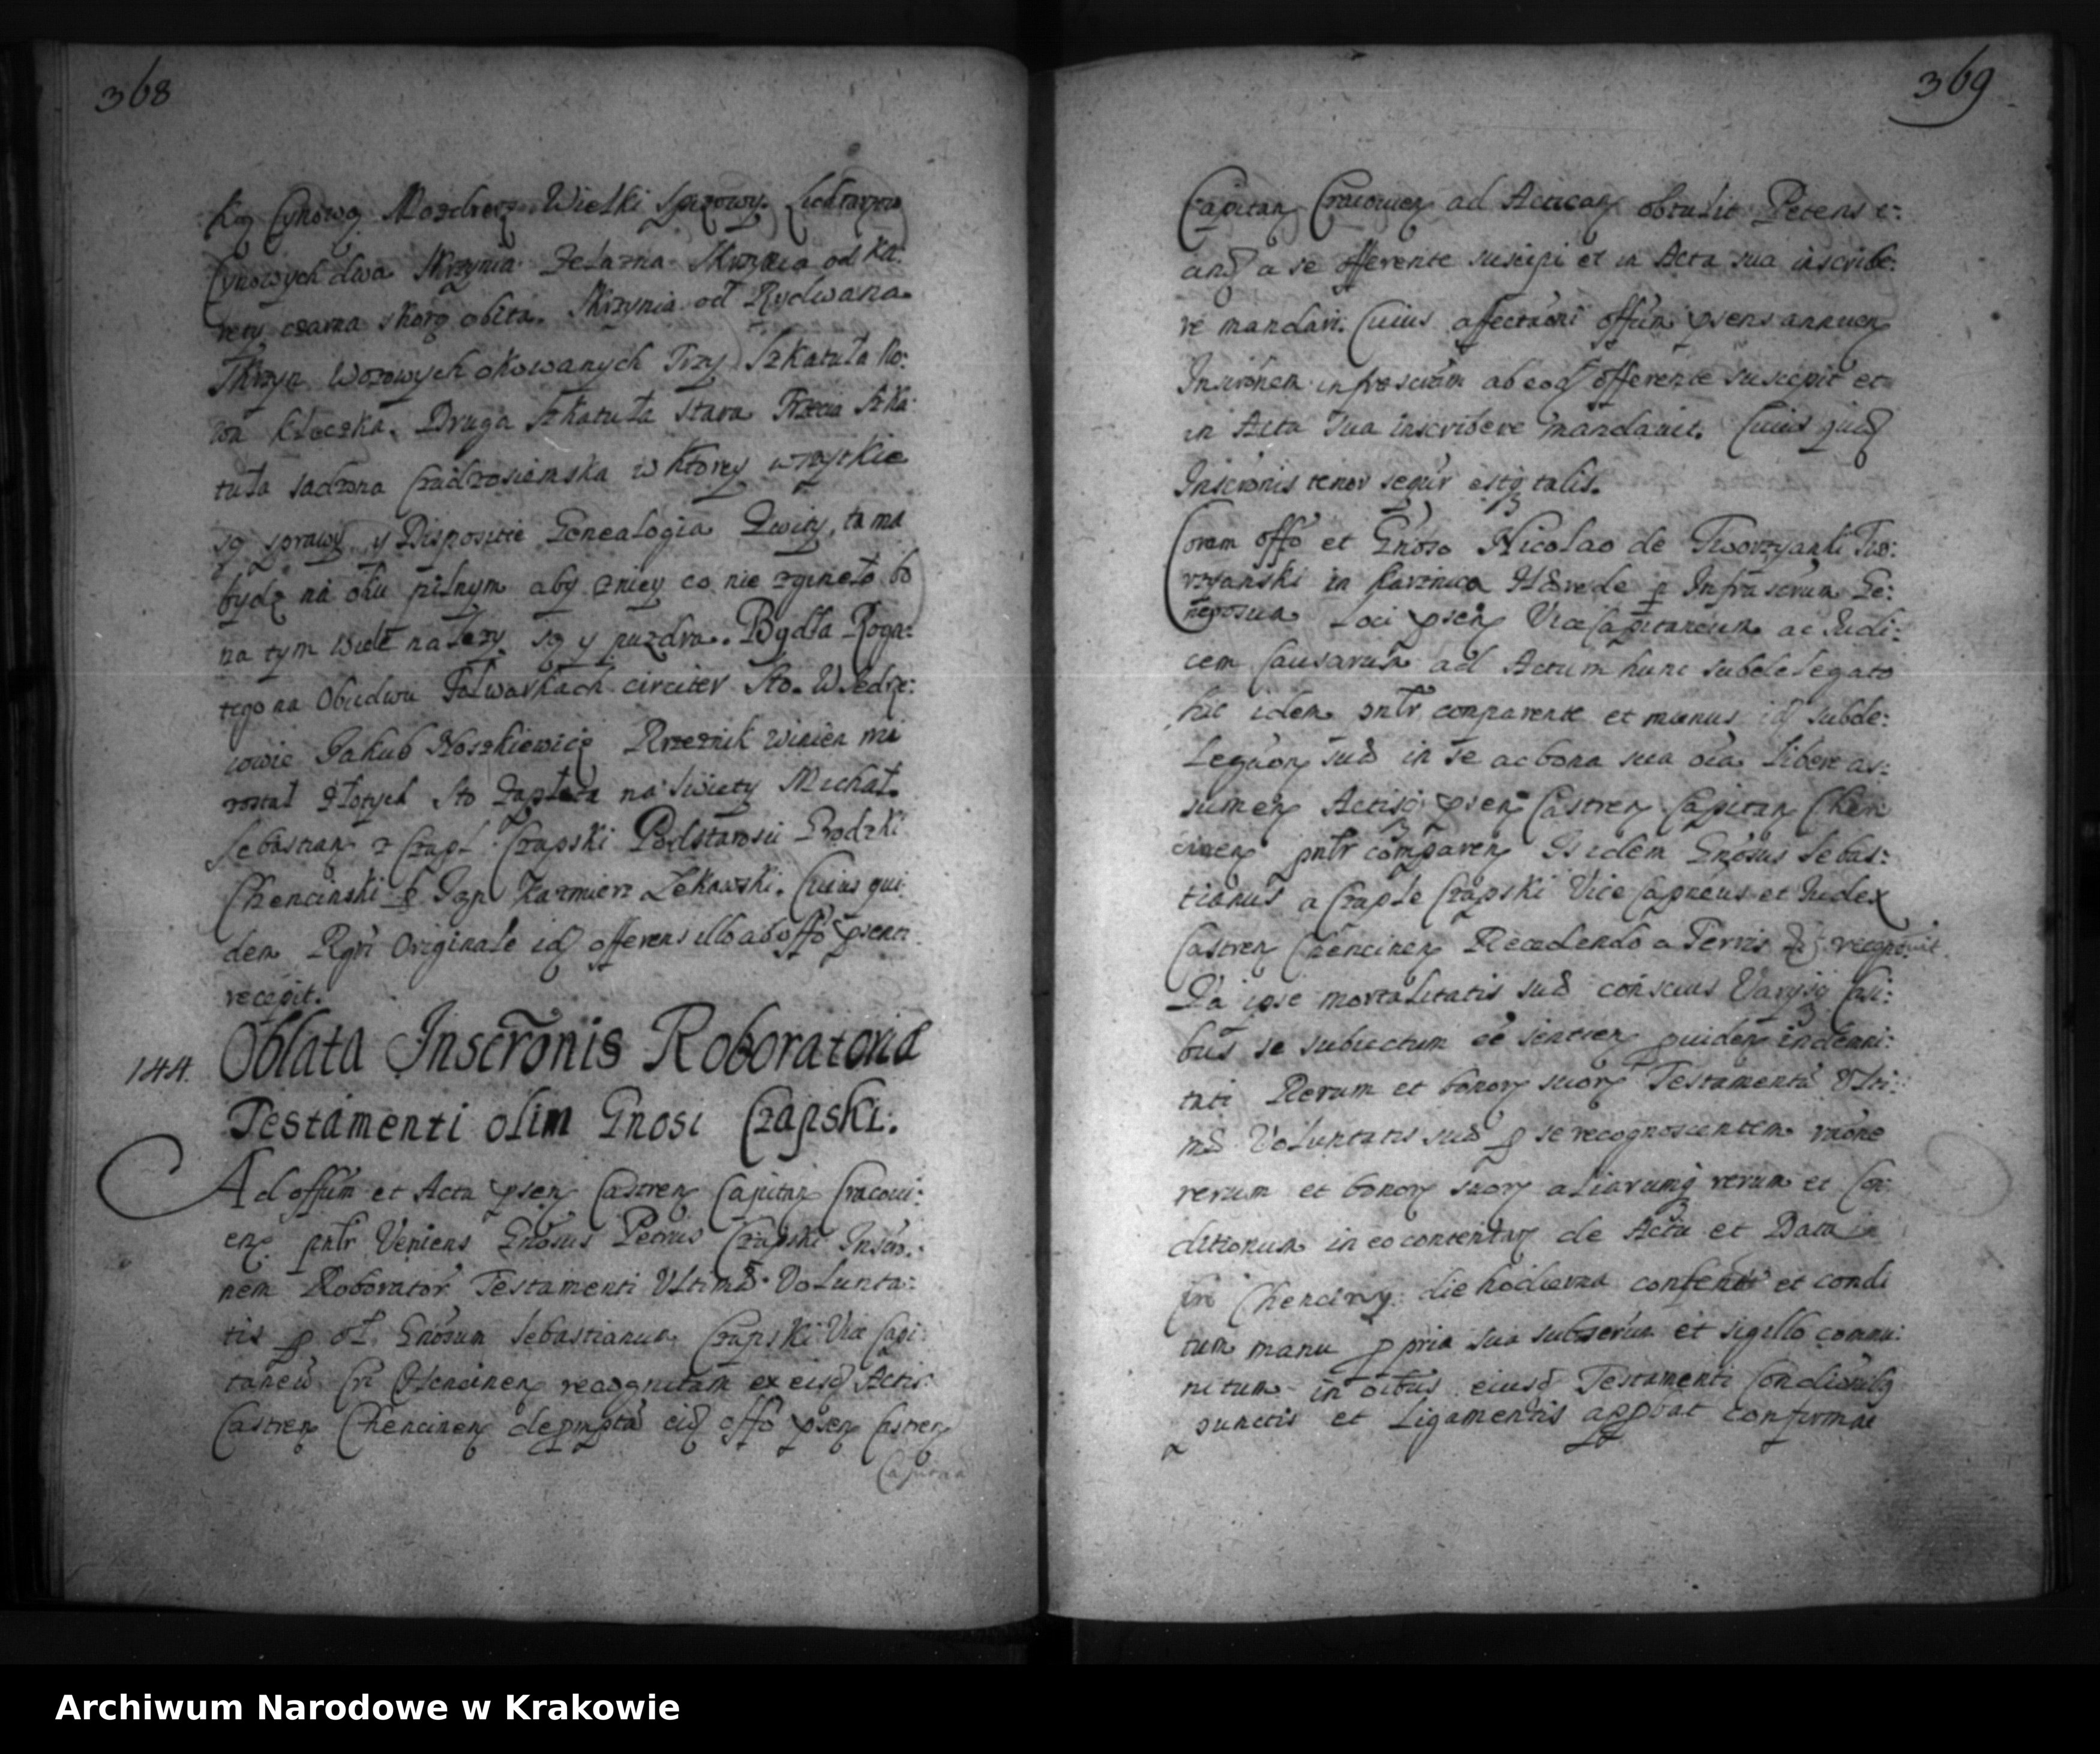 368
Cynową Mozdzerz Wielki Spizowy Lichtarzow
Cynowych dwa Skrzynia Zelazna Skrzynia od Ka:
rety czarna skorą obita. Skrzynia od Rydwana
Skrzyn Wozowych okowanych Trzy Szkatuła No:
wa Druga Szkatuła Stara Trzecia Szka:
tuła sadzona w ktorey wszytkie
są sprawy y Dispositie Genealogia Kwity, ta ma
bydz na oku pilnym aby zniey co nie zgineło bo
na tym wiele nalezy są y puzdra. Bydła Roga:
tego na Obudwu Folwarkach circiter Sto. W Jędrze:
iowie Jakub Noszkiewicz Rzeznik winien mi
został Złotych Sto Zapłata na Swięty Michał.
Sebastian z Czapl Czapski Podstarosci Grodzki
Chencinski Jan Kazmierz Zękawski. Cuius qui
dem Rgri Originale id offerens illo ab offo psenti
recepit.
144. Oblata Inscronis Roboratoriae
Testamenti olim Gnosi Czapski:
Ad offium et Acta psen Castren Capitan Cracovi:
en pntr Veniens Gnosus Petrus Czapski Inscro:
nem Roborator Testamenti Ultimae Volunta:
tis p ol Gnosum Sebastianum Czapski Vice Capi
taneu Cri Chencinen recognitam ex eisd Actis
Castren Chencinen depmpta eid offo psen Castren
Capitan
369
Capitan Cracovien ad Actican obtulit Petens e:
and a se offerente suscipi et in Acta sua inscribe:
re mandari. Cuius affectaoni offim psens annuen
Inscronem infrascriam ab eod offerente suscepit et
in Acta sua inscribere mandavit. Cuius quid
Inscronis tenor sequr estq talis.
Coram offo et Gnoso Nicolao de Tworzyanki Two:
rzyanski in Karznica Haerede p Infrascrum Ge:
nerosum Loci psen Vice Capitaneum ac Judi:
cem Causarum ad Actum hunc subdelegato
hic idem pntr comparente et munus id subde:
legaon suae in se ac bona sua oia libere as:
sumen Actisq psen Castren Capitan Chen
cinen pntr comparen Isidem Gnosus Sebas:
tianus a Czaple Czapski Vice Capneus et Judex
Castren Chencinen Recedendo a Terris recognovit
Qa ipse mortalitatis suae conscius Varysq Casi:
bus se subiectum ee sentien quidem indemni:
tati Rerum et bonor suor Testamentu Ulti:
mae Voluntatis suae p se recognoscentem raone
rerum et bonor suor aliarumq rerum et Con
ditionum in eo contentar de Actu et Data in
Cri Chenciny die hodierna confectu et condi
tum manu ppria sua subscrum et sigillo commu:
nitum in oibus eiusd Testamenti Condionibq
punctis et Ligamentis appbat confirmat
Archiwum Narodowe w Krakowie